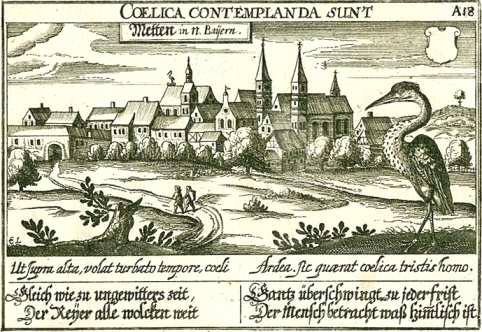 COELICA CONTEMPLANDA SUNT
A18
Metten in N. Bayern.
E.L
Ut supra alta, volat turbato tempore, coeli
Ardea, sic quaerat coelica tristis homo.
Gleich wie zu ungewitters zeit,
Der Reyer alle wolcken weit
Gantz überschwingt, zu jeder frist
Der Mensch betracht was himlisch ist.